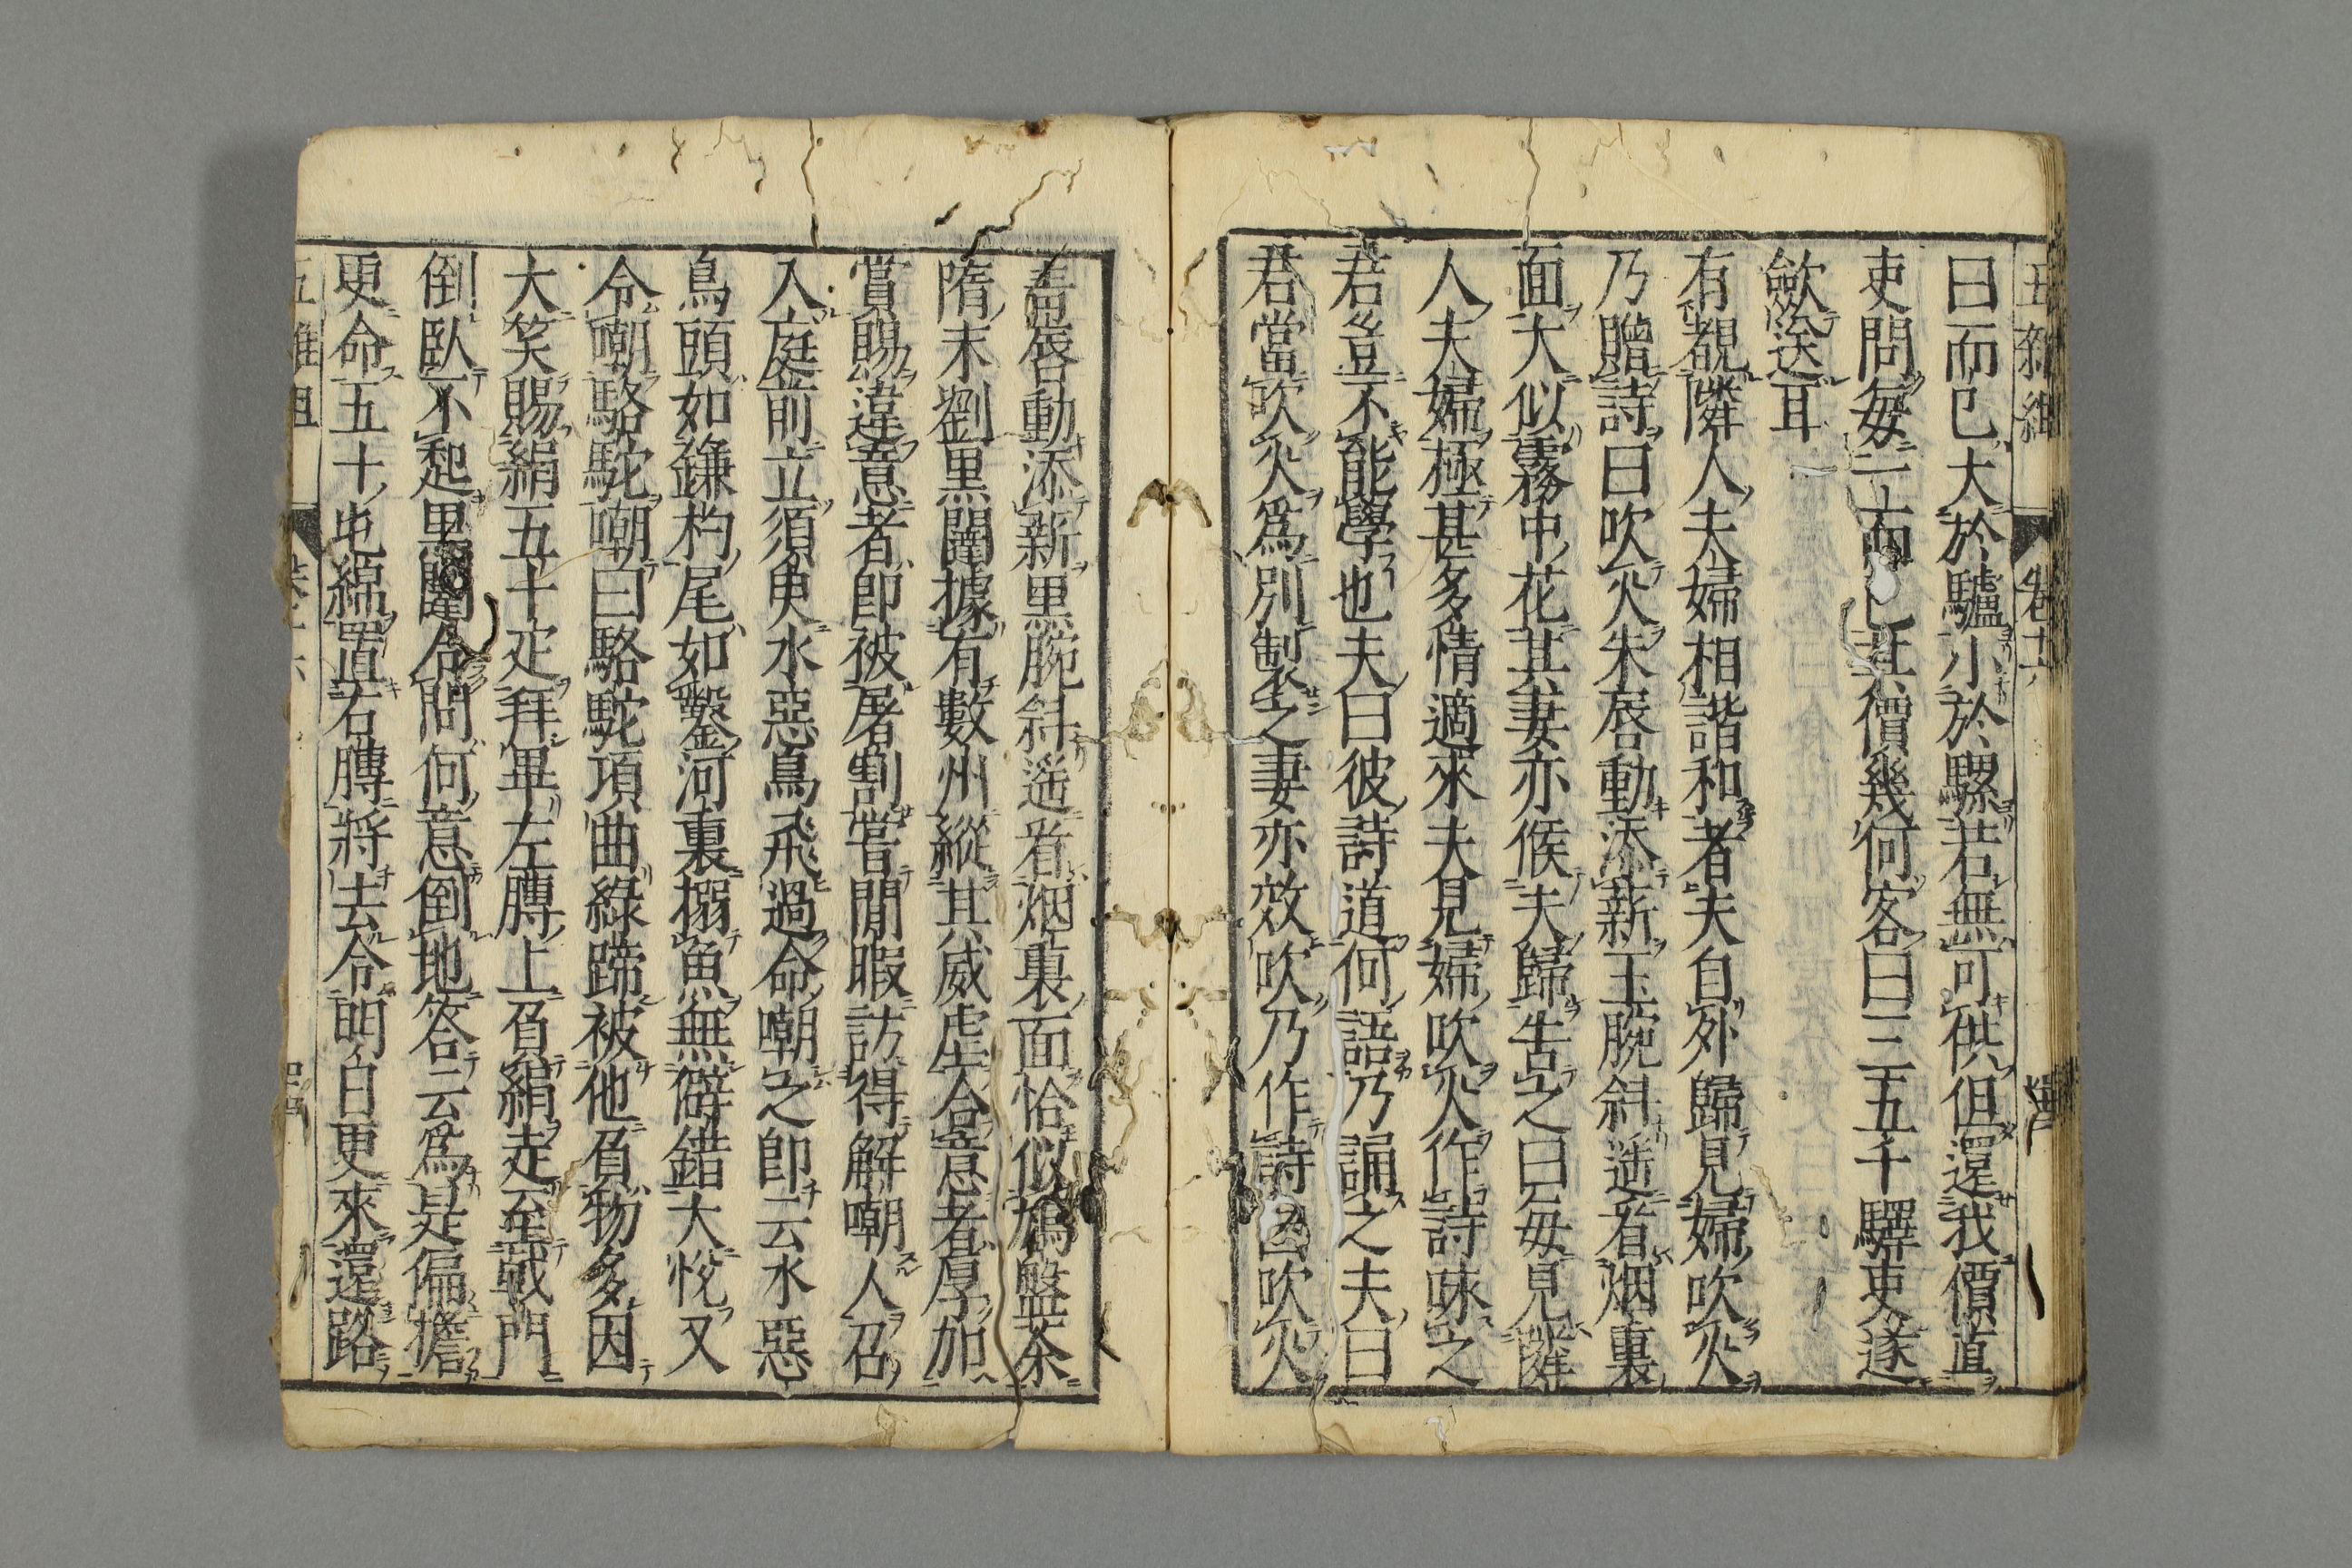 五雜組 卷十六
曰而已大於驢小於騾若無可供但還我價直
吏問每一而已其價幾何客曰三五千驛吏遂
斂送耳
有覩隣人夫婦相諧和者夫自外歸見婦吹火
乃贈詩曰吹火朱唇動添薪玉腕斜遥看烟裏
面大似霧中花其妻亦候夫歸告之曰每見隣
人夫婦極甚多情適來夫見婦吹火作詩咏之
君豈不能學也夫曰彼詩道何語乃誦之夫曰
君當吹火爲別製之妻亦效吹乃作詩曰吹火
青唇動添薪黑腕斜遥看烟裏面恰似鳩盤茶
隋末劉黑闥據有數州縱其威虐合意者厚加
賞賜違意者即被屠割嘗閒暇訪得解嘲人召
入庭前立須臾水惡鳥飛過命嘲之即云水惡
鳥頭如鎌杓尾如鑿河裏搦魚無僻錯大悅又
令嘲駱駝嘲曰駱駝項曲綠蹄被他負物多因
大笑賜絹五十疋拜畢左膊上負絹走至戟門
倒臥不起黑闥令問何意倒地答云爲是偏擔
更命五十屯綿置右膊將去令明日更來還路
五雜組 卷十六